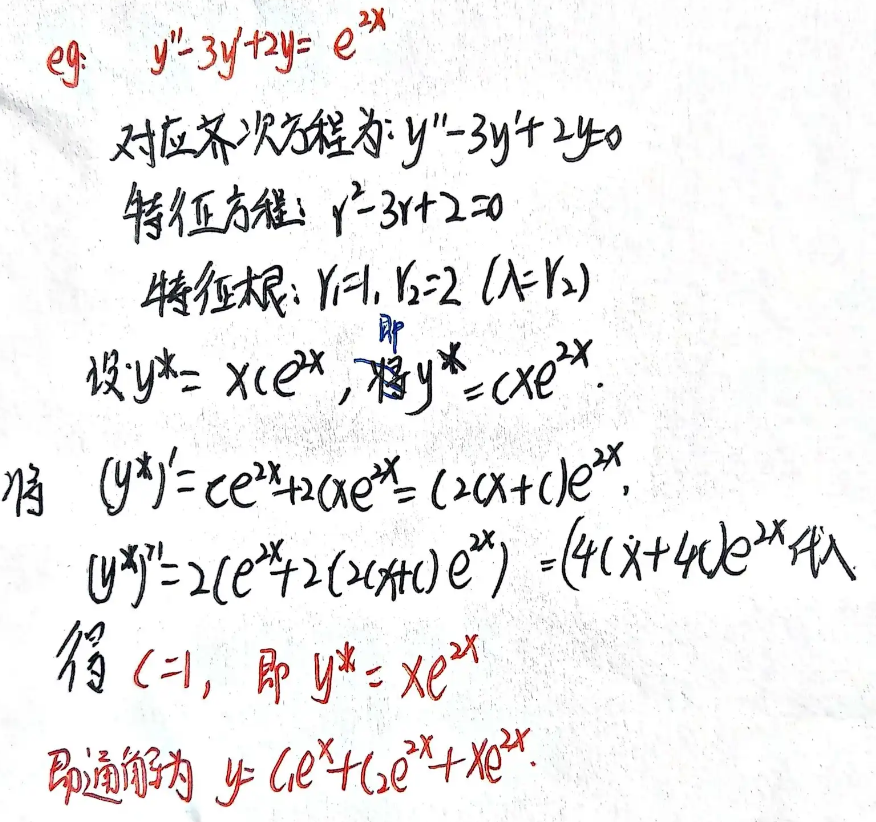 eg: y''-3y'+2y= e^{2x}
对应齐次方程为: y''-3y'+2y=0
特征方程: r²-3r+2=0
特征根: r₁=1, r₂=2 (λ=r₂)
即
设 y*= xce^{2x}, y*=cxe^{2x}.
将 (y*)'=ce^{2x}+2cxe^{2x}=(2cx+c)e^{2x},
(y*)''=2ce^{2x}+2(2cx+c)e^{2x}) =(4cx+4c)e^{2x}代入
得 c=1, 即 y*=xe^{2x}
即通解为 y=c₁e^x+c₂e^{2x}+xe^{2x}.